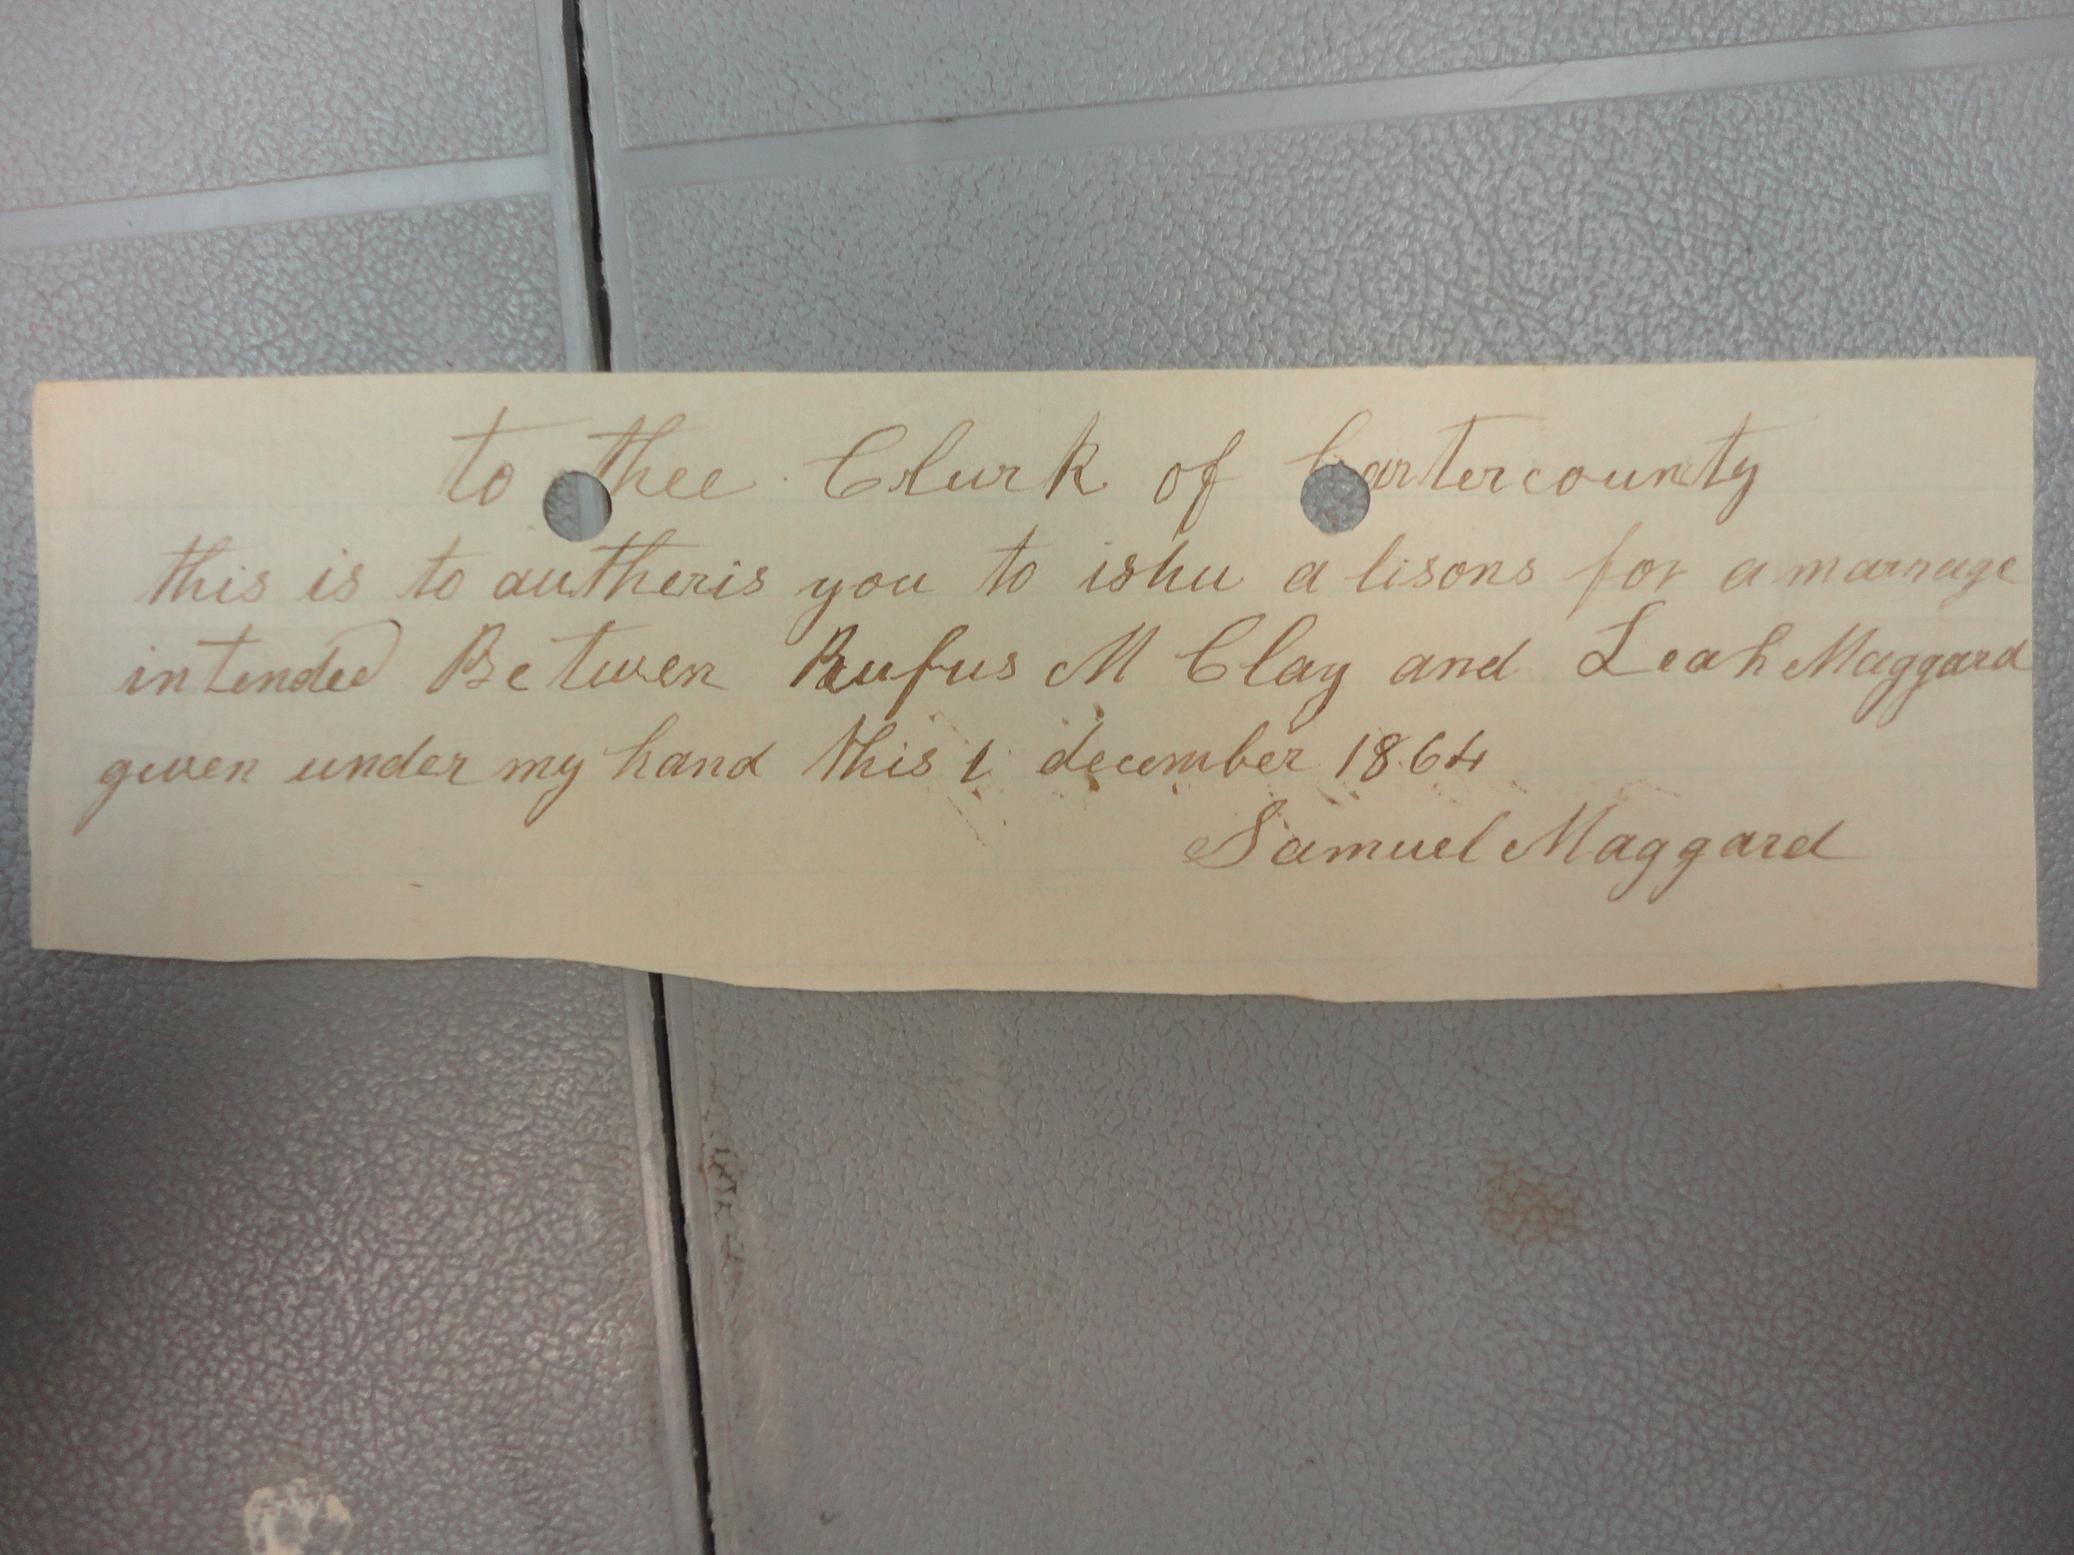 to thee Clurk of Carter county
this is to autheris you to ishu a lisons for a marrage
intended Betwen Rufus M Clay and Leah Maggard
given under my hand this 1 december 1864
Samuel Maggard